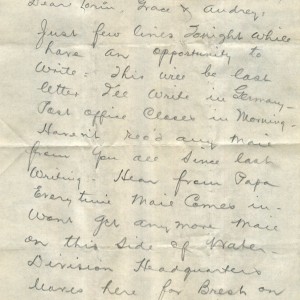 Dear Lorin, Grace & Audrey:
Just few lines Tonight while
have an opportunity to
Write: This will be last
letter I'll Write in Germany-
Post office Closes in Morning-
Haven't rec'd any Mail
from You all Since last
Writing- Hear from Papa
Everytime Mail Comes in-
Wont get any more Mail
on this Side of Water-
Division Headquarters
leaves here for Brest on